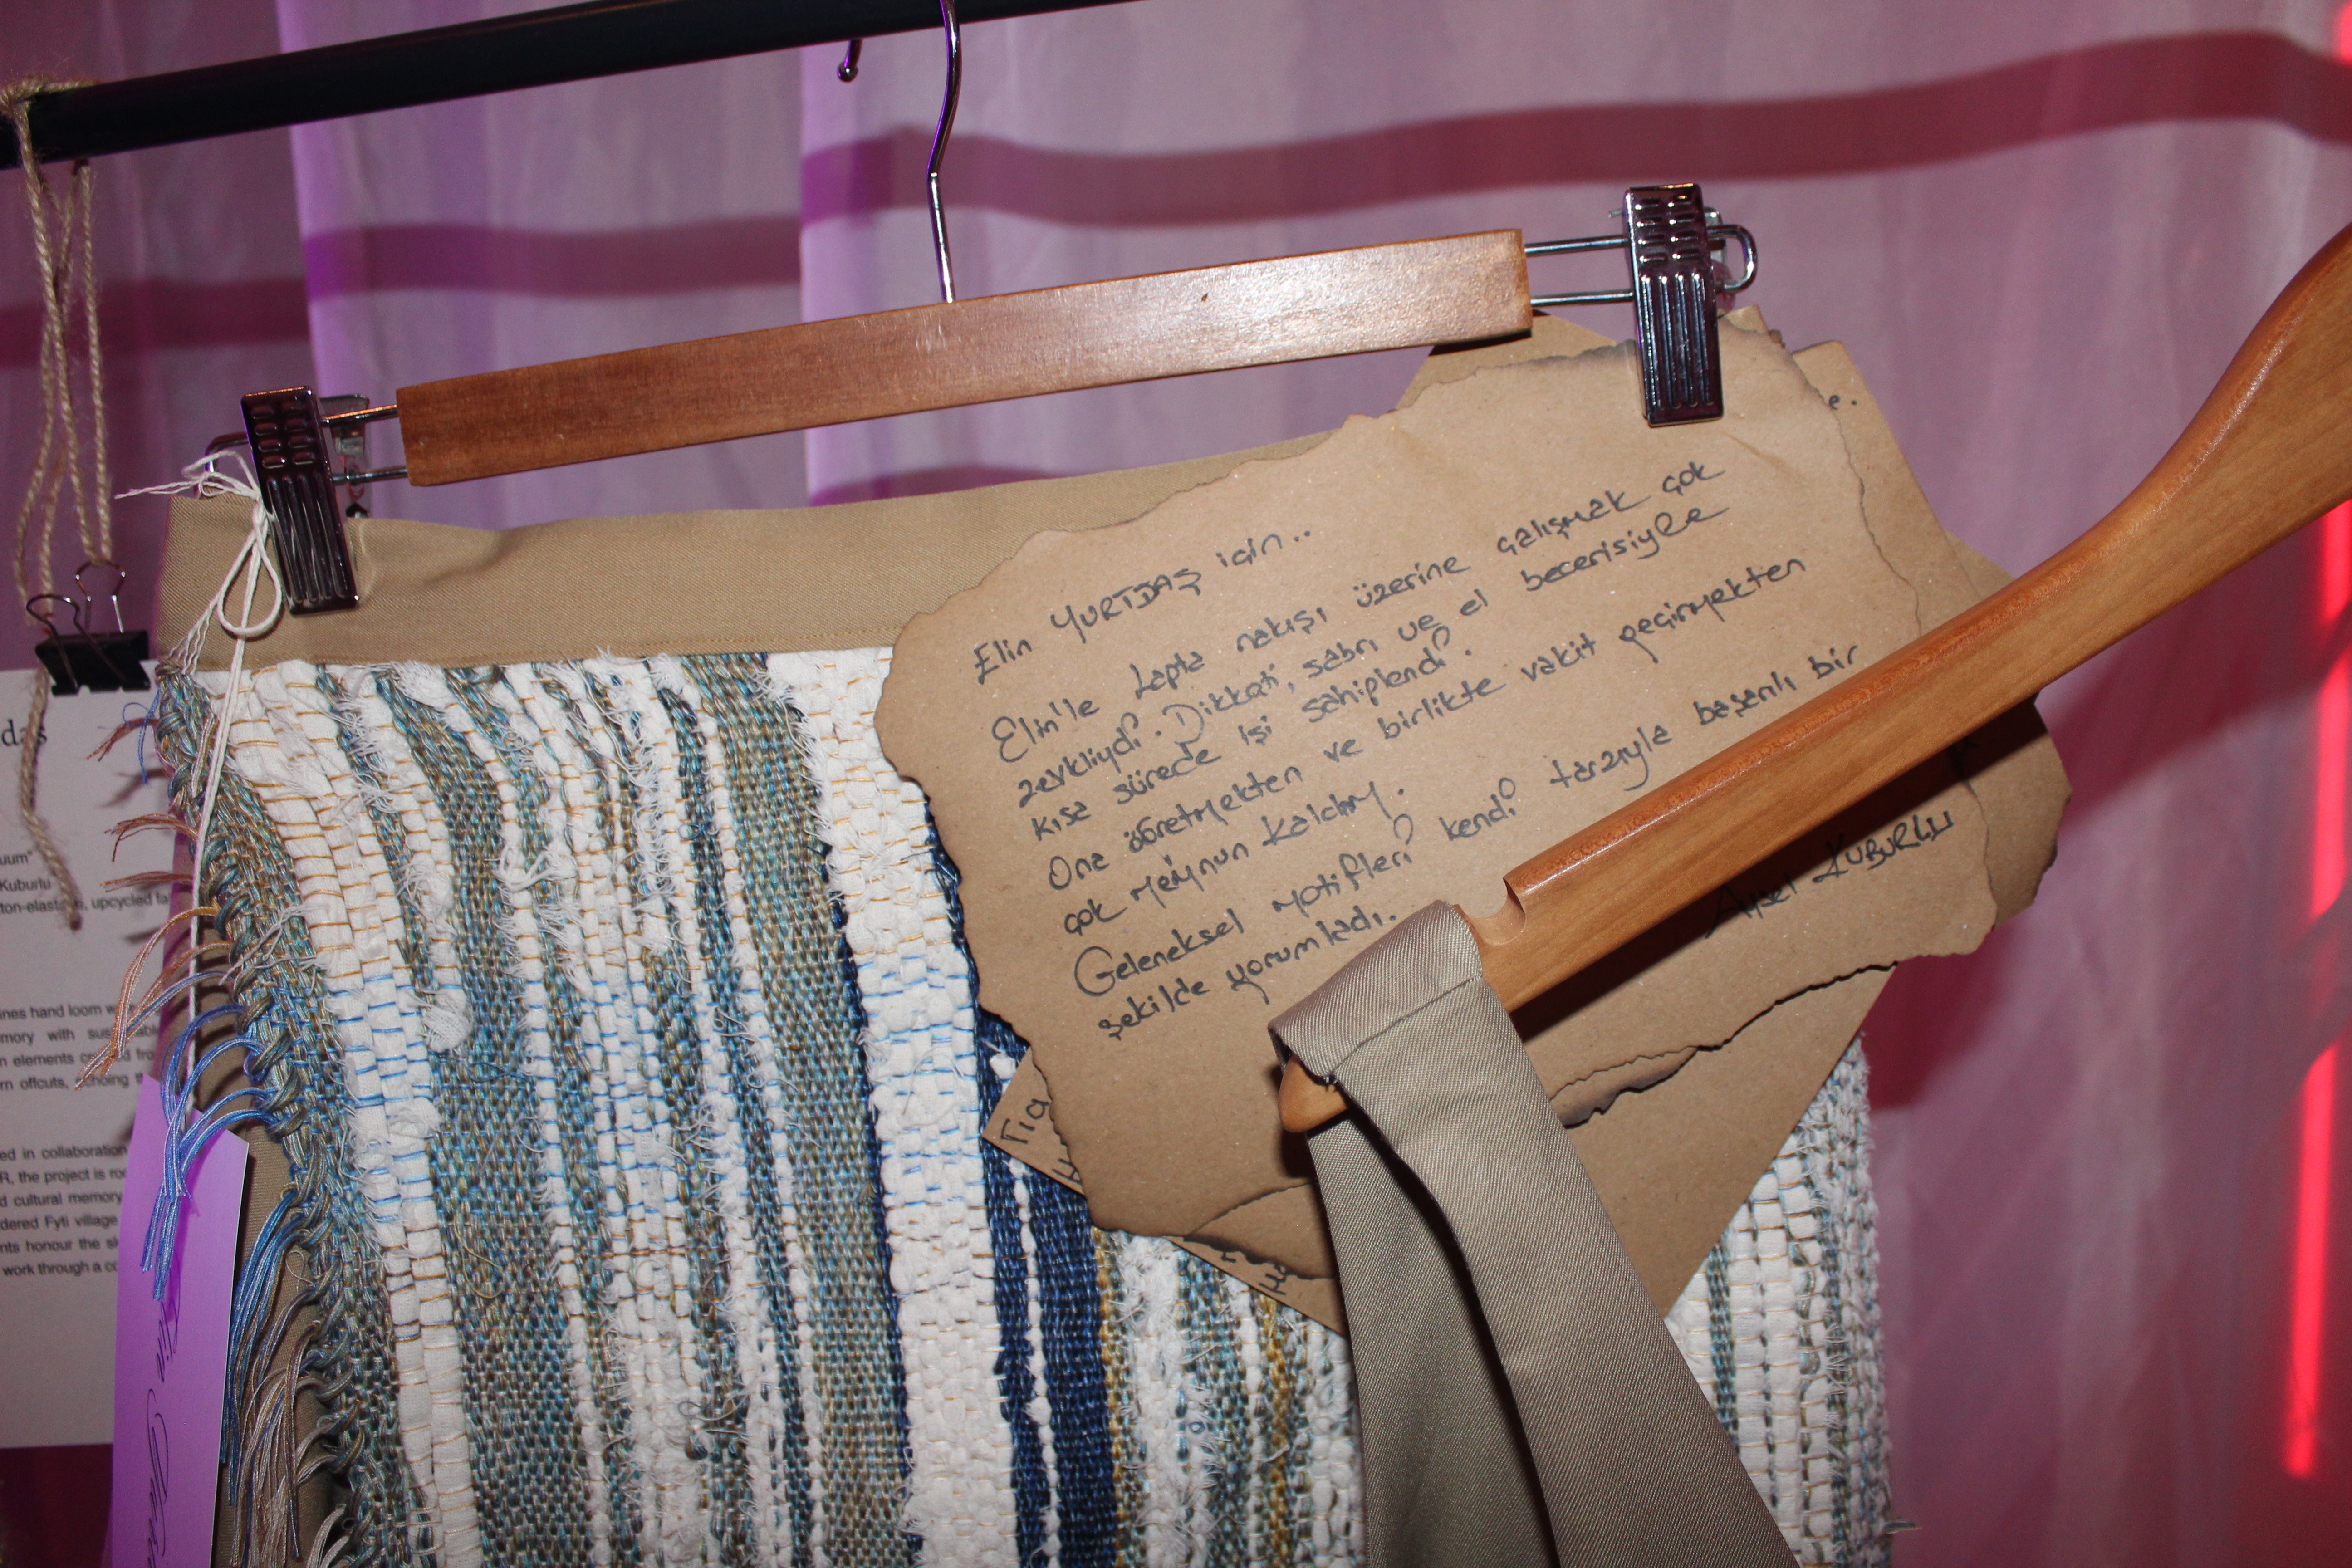 Elin YURTDAŞ için..
Elin'le Lapta nakışı üzerine çalışmak çok
zevkliydi. Dikkati, sabrı ve el becerisiyle
kısa sürede işi sahiplendi.
Ona öğretmekten ve birlikte vakit geçirmekten
çok memnun kaldım.
Geleneksel motifleri kendi tarzıyla başarılı bir
şekilde yorumladı.
Aysel KUBURLU
e.
Για
daş
uum"
Kuburlu
ton-elastane, upcycled fa
ines hand loom w
mory with sustainable
n elements crafted fro
rn offcuts, echoing th
ed in collaboration
R, the project is roo
d cultural memory
dered Fyti village
nts honour the sk
work through a co